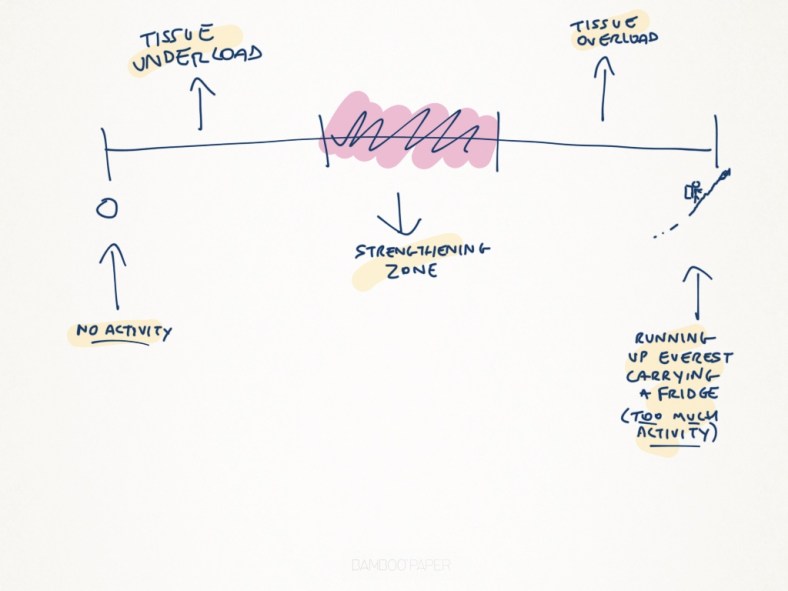 TISSUE
UNDERLOAD
TISSUE
OVERLOAD
STRENGTHENING
ZONE
O
NO ACTIVITY
RUNNING
UP EVEREST
CARRYING
A FRIDGE
(TOO MUCH
ACTIVITY)
BAMBOO PAPER